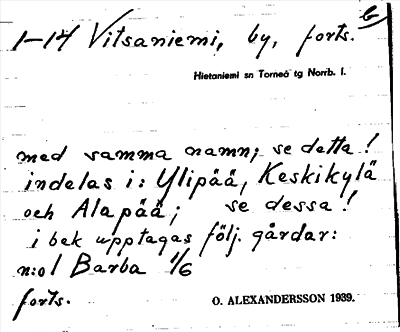 6
1-14 Vitsaniemi, by, forts.
Hietaniemi sn Torneå tg Norrb. l.
med samma namn; se detta!
indelas i: Ylipää, Keskikylä
och Alapää; se dessa!
i bek upptagas följ. gårdar:
n:o 1 Barba 1/6
forts.
O. ALEXANDERSSON 1939.